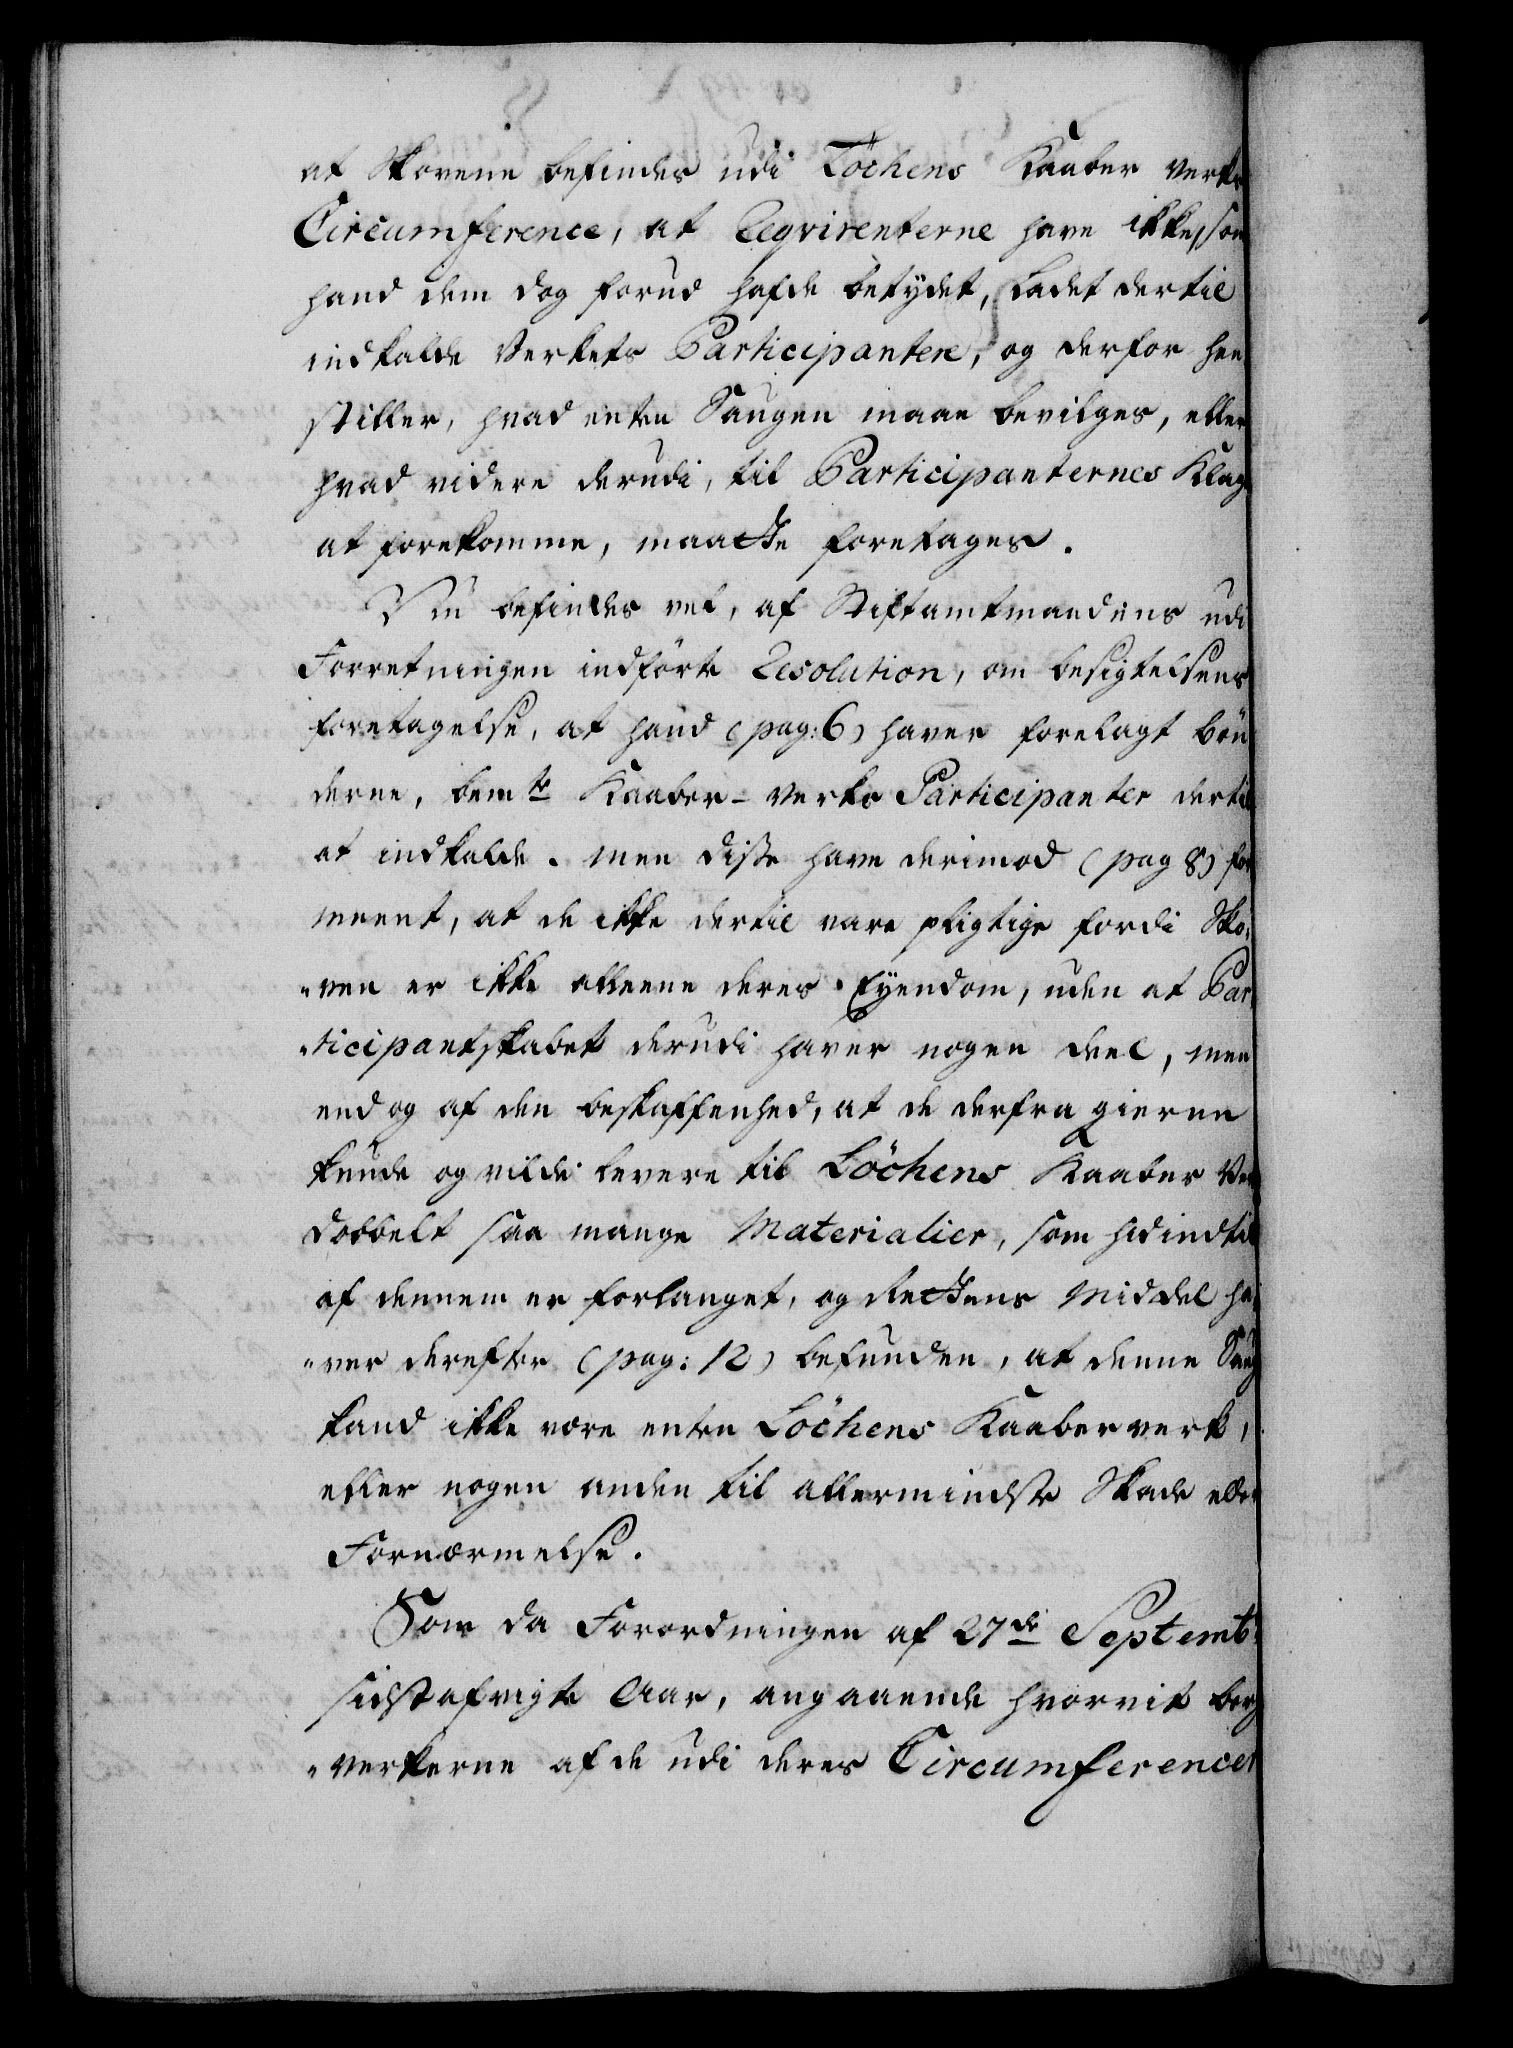 at Skovene befindes udi Löchens Kaaber verks
Circumference, at Reqvirenterne have ikke, som
hand dem dog forud hafde betÿdet, ladet dertil
indkalde Verkets Participantere, og derfor hen
stiller, hvad enten Saugen maae bevilges, eller
hvad videre derudi, til Participanternes Klage
at forekomme, maatte foretages.
Nu befindes vel, af Stiftamtmandens udi
Forretningen indförte Resolution, om besigtelsens
foretagelse, at hand (pag: 6) haver forelagt bön
derne, bemte Kaaber-verks Participanter dertil
at indkalde. men disse have derimod (pag 8) for
meent, at de ikke dertil vare pligtige fordi Sko,
„ven er ikke alleene deres Eÿendom, uden at Par,
„ticipantskabet derudi haver nogen deel, men
end og af den beskaffenhed, at de derfra gierne
kunde og vilde levere til Löchens Kaaber Verk
dobbelt saa mange Materialier, som hidindtil
af dennem er forlanget, og Rettens Middel ha,
„ver derefter (pag: 12) befunden, at denne Saug
kand ikke være enten Löchens Kaaberverk,
eller nogen anden til allermindste Skade eller
Fornærmelse.
Som da Forordningen af 27de Septembr
sidstafvigte Aar, angaaende hvorvit berg
„verkerne af de udi deres Circumferencer